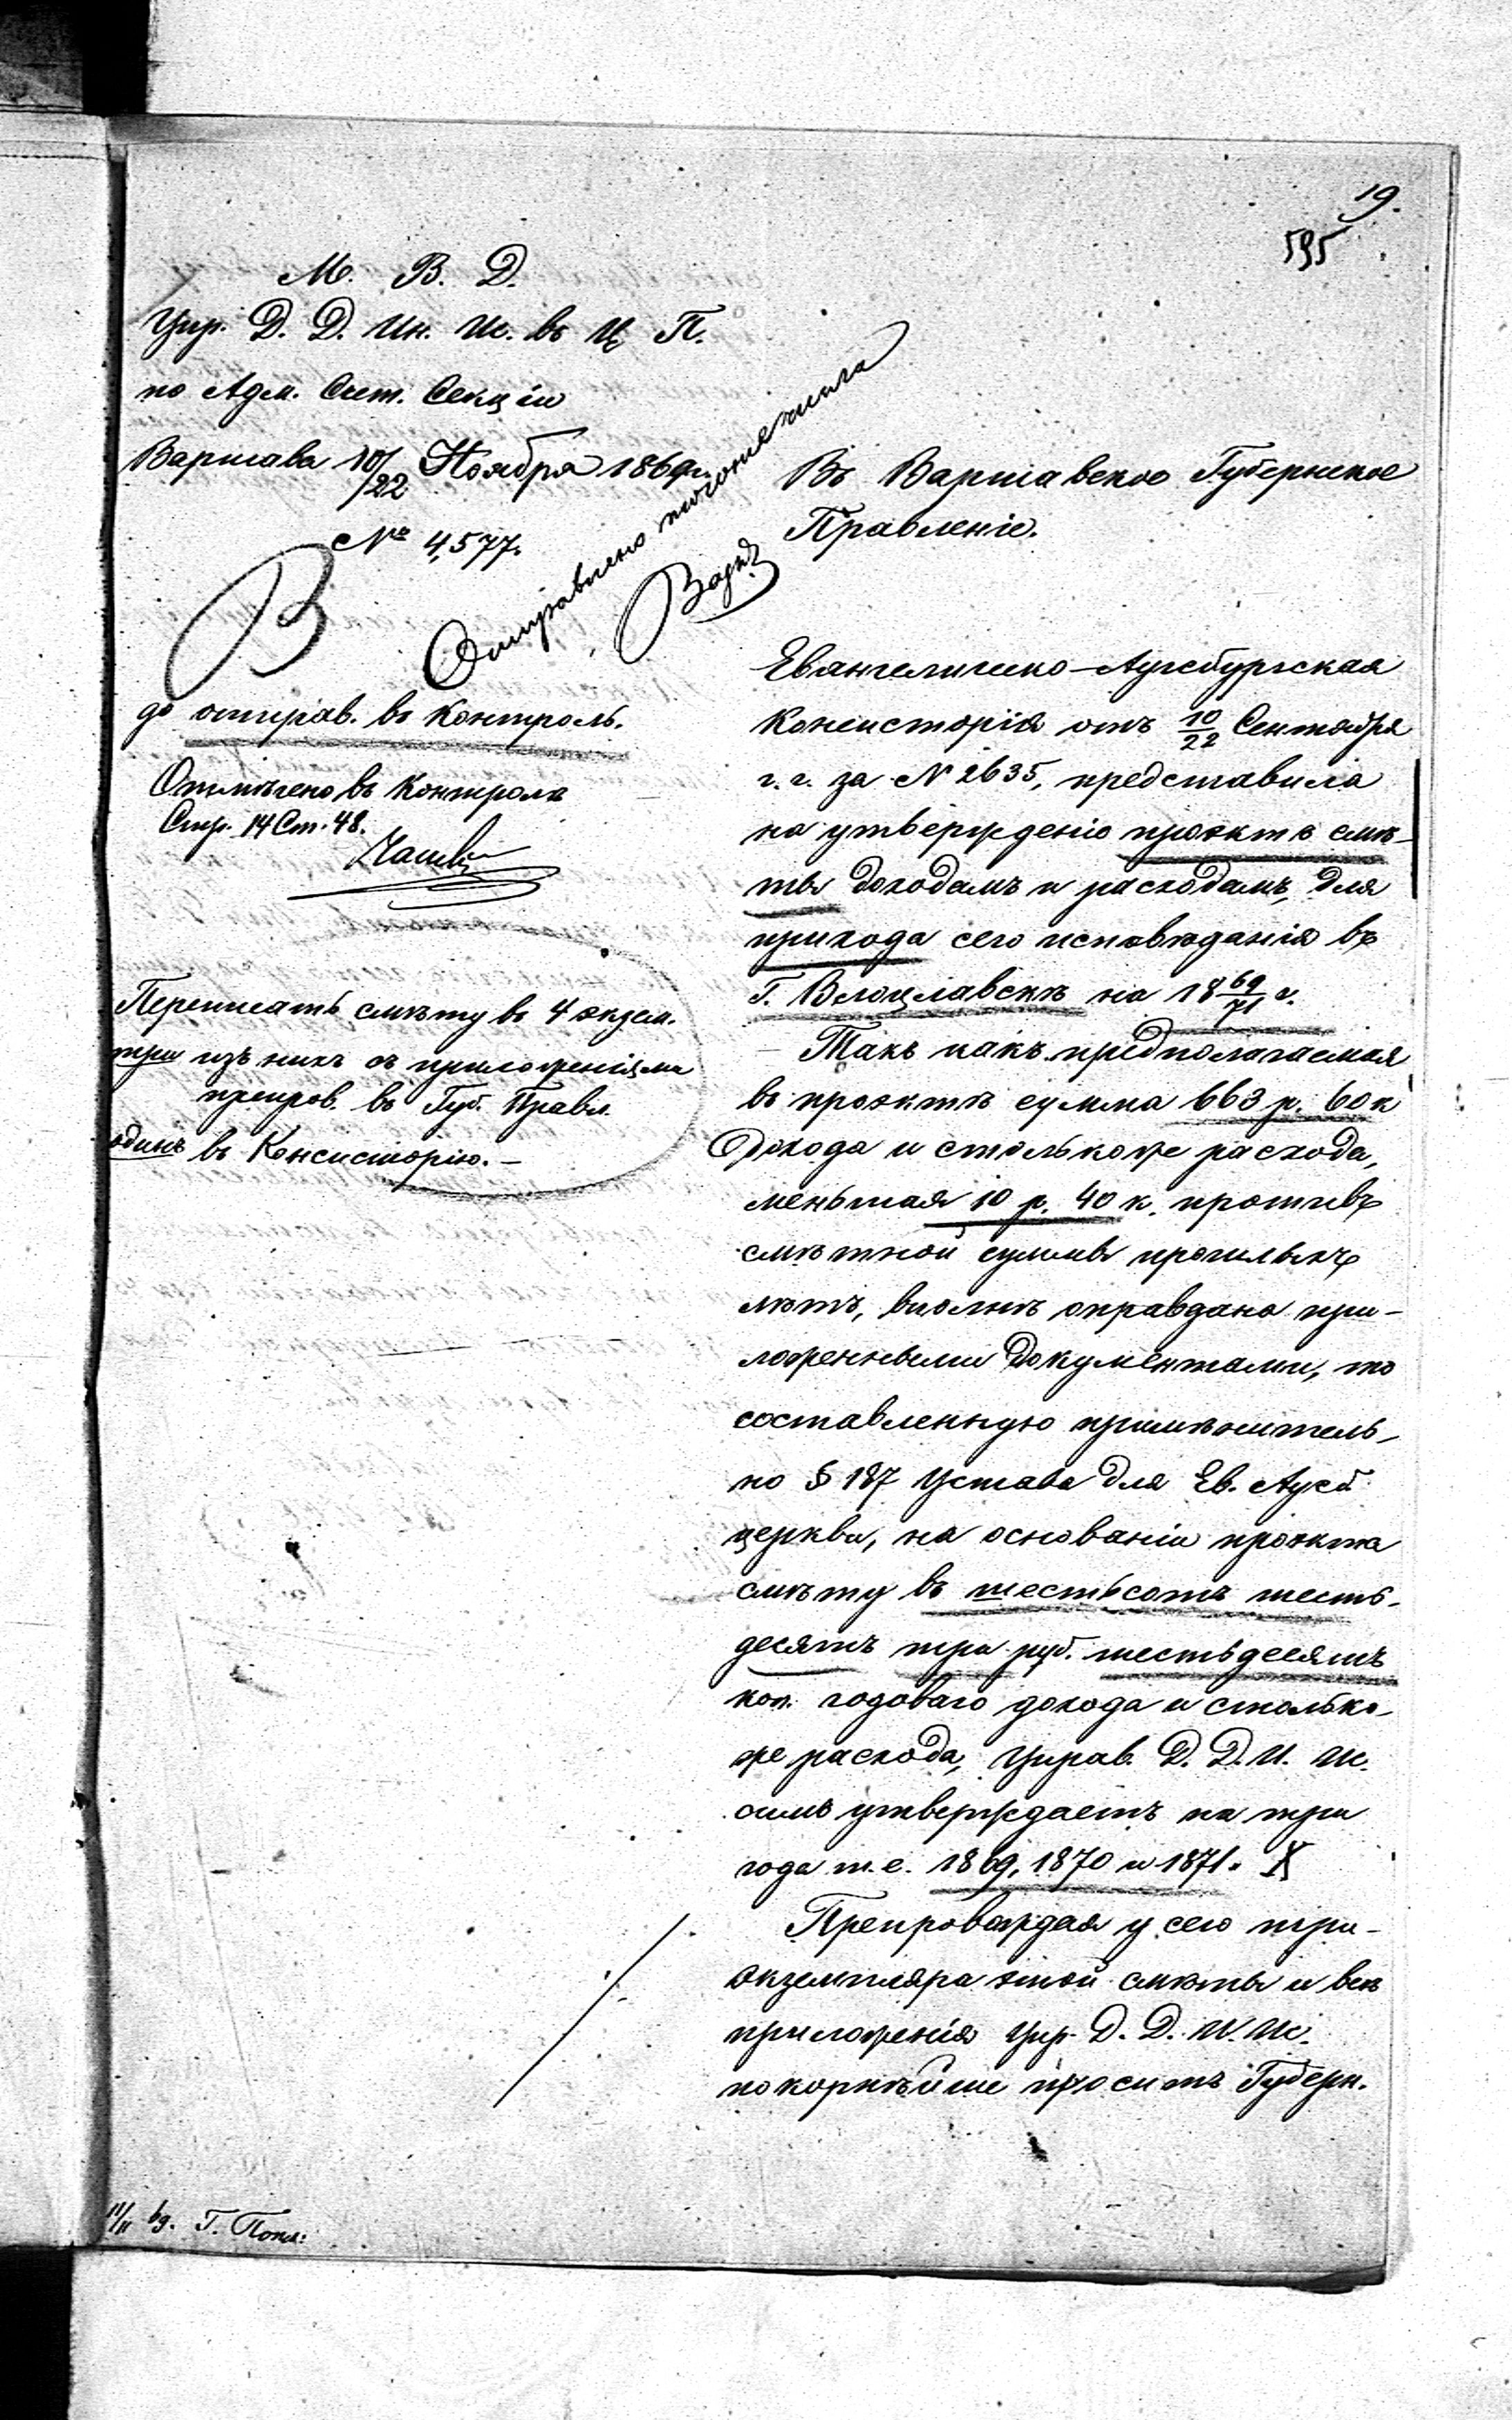 19.
595
М. В. Д.
Упр. Д. Д. Ин. Ис. въ Ц П.
по Адм. Счет. Секціи
Варшава 10/22 Ноября 1869 г.
№ 4,577.
Отправлено
В
до отправ. въ Контроль.
Отмѣчено въ Контролѣ
Стр. 14 Ст. 48.
Переписать смѣту въ 4 экзем.
три изъ нихъ съ приложеніями
препров. въ Губ. Правл.
одинъ въ Консисторію. —
Въ Варшавское Губернское
Правленіе.
Евангелическо-Аугсбургская
Консисторія отъ 10/22 Сентября
с. г. за № 2635, представила
на утвержденіе проэктъ смѣ-
ты доходамъ и расходамъ, для
прихода сего исповѣданія въ
г. Влоцлавскѣ на 18 69/71 г.
Такъ какъ предполагаемая
въ проэктѣ сумма 663 р. 60 к
дохода и столькоже расхода,
меньшая 10 р. 40 к. противъ
смѣтной суммы прошлыхъ
лѣтъ, вполнѣ оправдана при-
ложенными документами, то
составленную примѣнитель-
но § 187 Устава для Ев. Аугсб
церкви, на основаніи проэкта
смѣту въ шестьсотъ шесть-
десятъ три руб. шестьдесятъ
коп. годоваго дохода и столько-
же расхода, Управ. Д. Д. И. Ис.
симъ утверждаетъ на три
года т. е. 1869, 1870 и 1871. X
Препровождая у сего три
экземпляра этой смѣты и всѣ
приложенія Упр. Д. Д. И. Ис.
покорнѣйше проситъ Губерн.
11/11 69. Г. Попл: